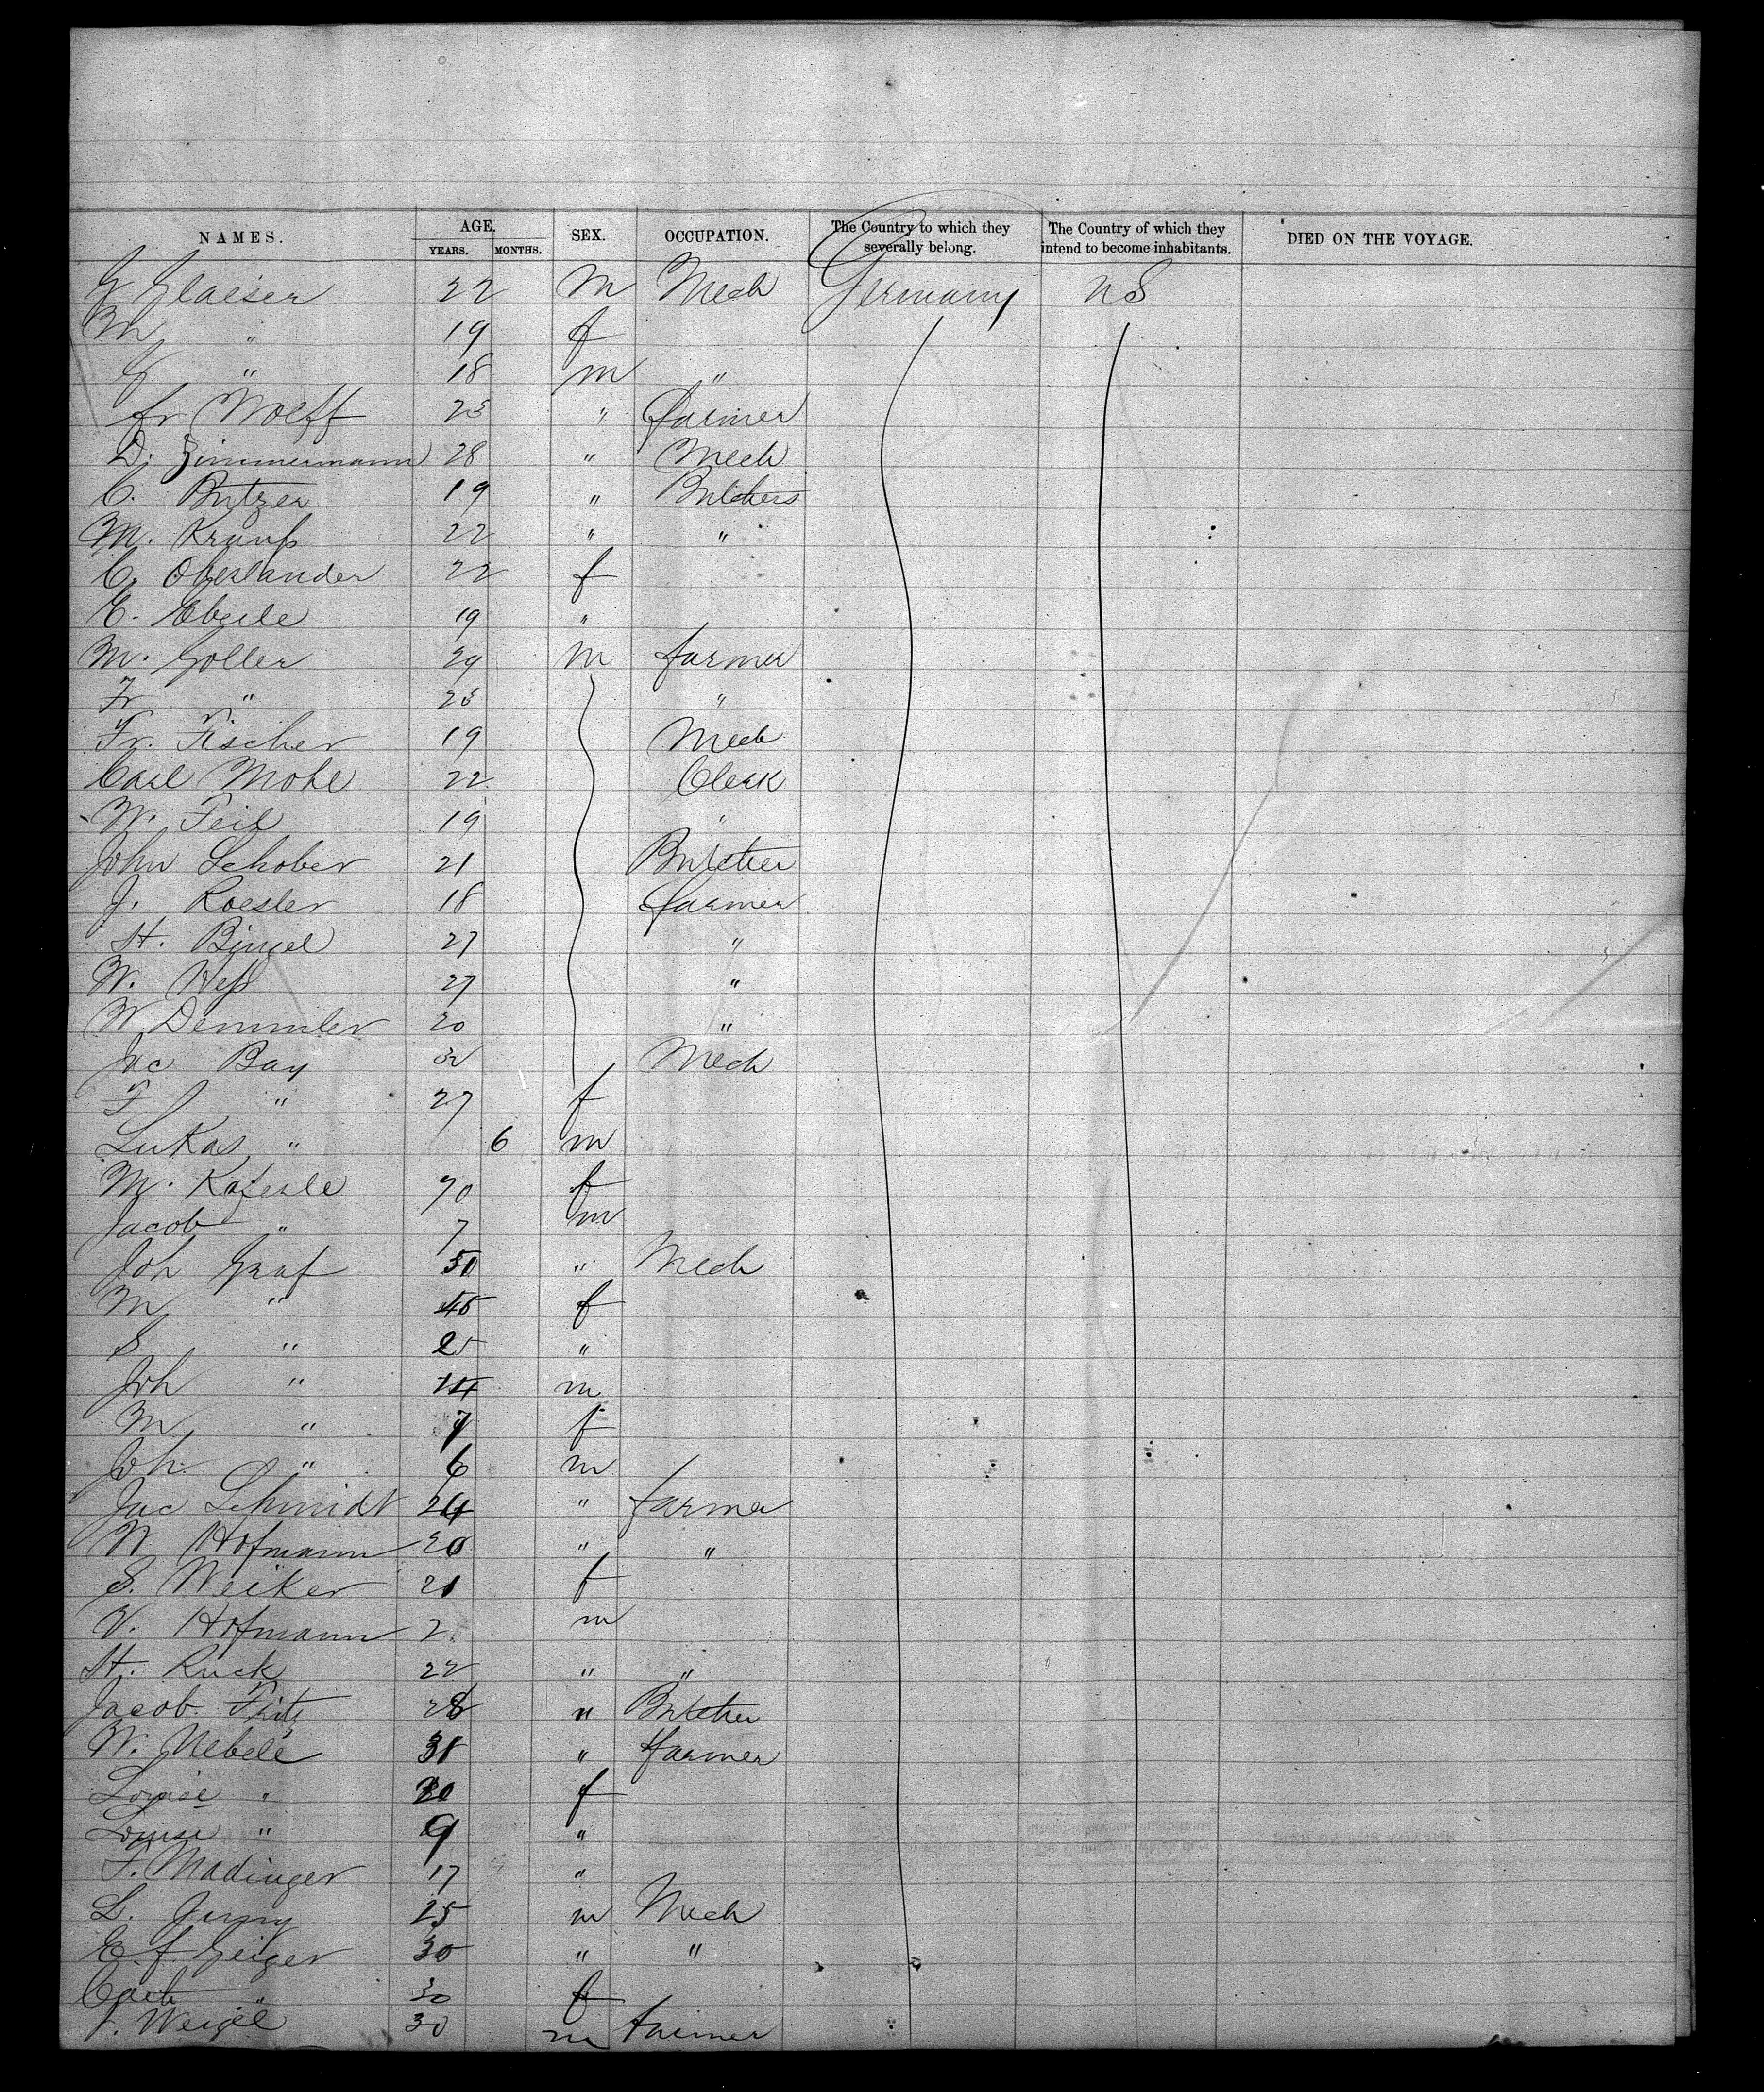 NAMES. AGE. YEARS. MONTHS. SEX. OCCUPATION. The Country to which they severally belong. The Country of which they intend to become inhabitants. DIED ON THE VOYAGE.
G Glaeser 22 M Mech Germany U S
M " 19 f
G " 18 m "
Fr Wolff 25 " farmer
D. Zimmermann 28 " Mech
C. Butzer 19 " Butchers
M. Krauß 22 " "
C. Oberlander 22 f
E. Eberle 19 "
M. Goller 29 m farmer
Fr " 25 "
Fr. Fischer 19 Mech
Carl Mohl 22 Clerk
W. Feil 19 "
John Schober 21 Butcher
J. Roesler 18 farmer
H. Bingel 27 "
W. Heß 27 "
W Demmler 20 "
Jac Bay 32 Mech
F " 27 f
Lukas " 6 m
M. 70 f
Jacob " 7 m
Joh Graf 50 " Mech
M " 45 f
S " 25 "
Joh " 14 m
M " 7 f
Joh " 6 m
Jac Schmidt 24 " farmer
W Hofmann 20 " "
S. Weiker 21 f
V. Hofmann 2 m
H. Ruck 22 " "
Jacob Fritz 28 " Butcher
W. Uebele 31 " farmer
Louise " 30 f
Louise " 9 "
F. Madinger 17 "
L. Jenny 25 m Mech
E. f. Geiger 30 " "
Cath " 30 f
J. Weigel 30 m farmer